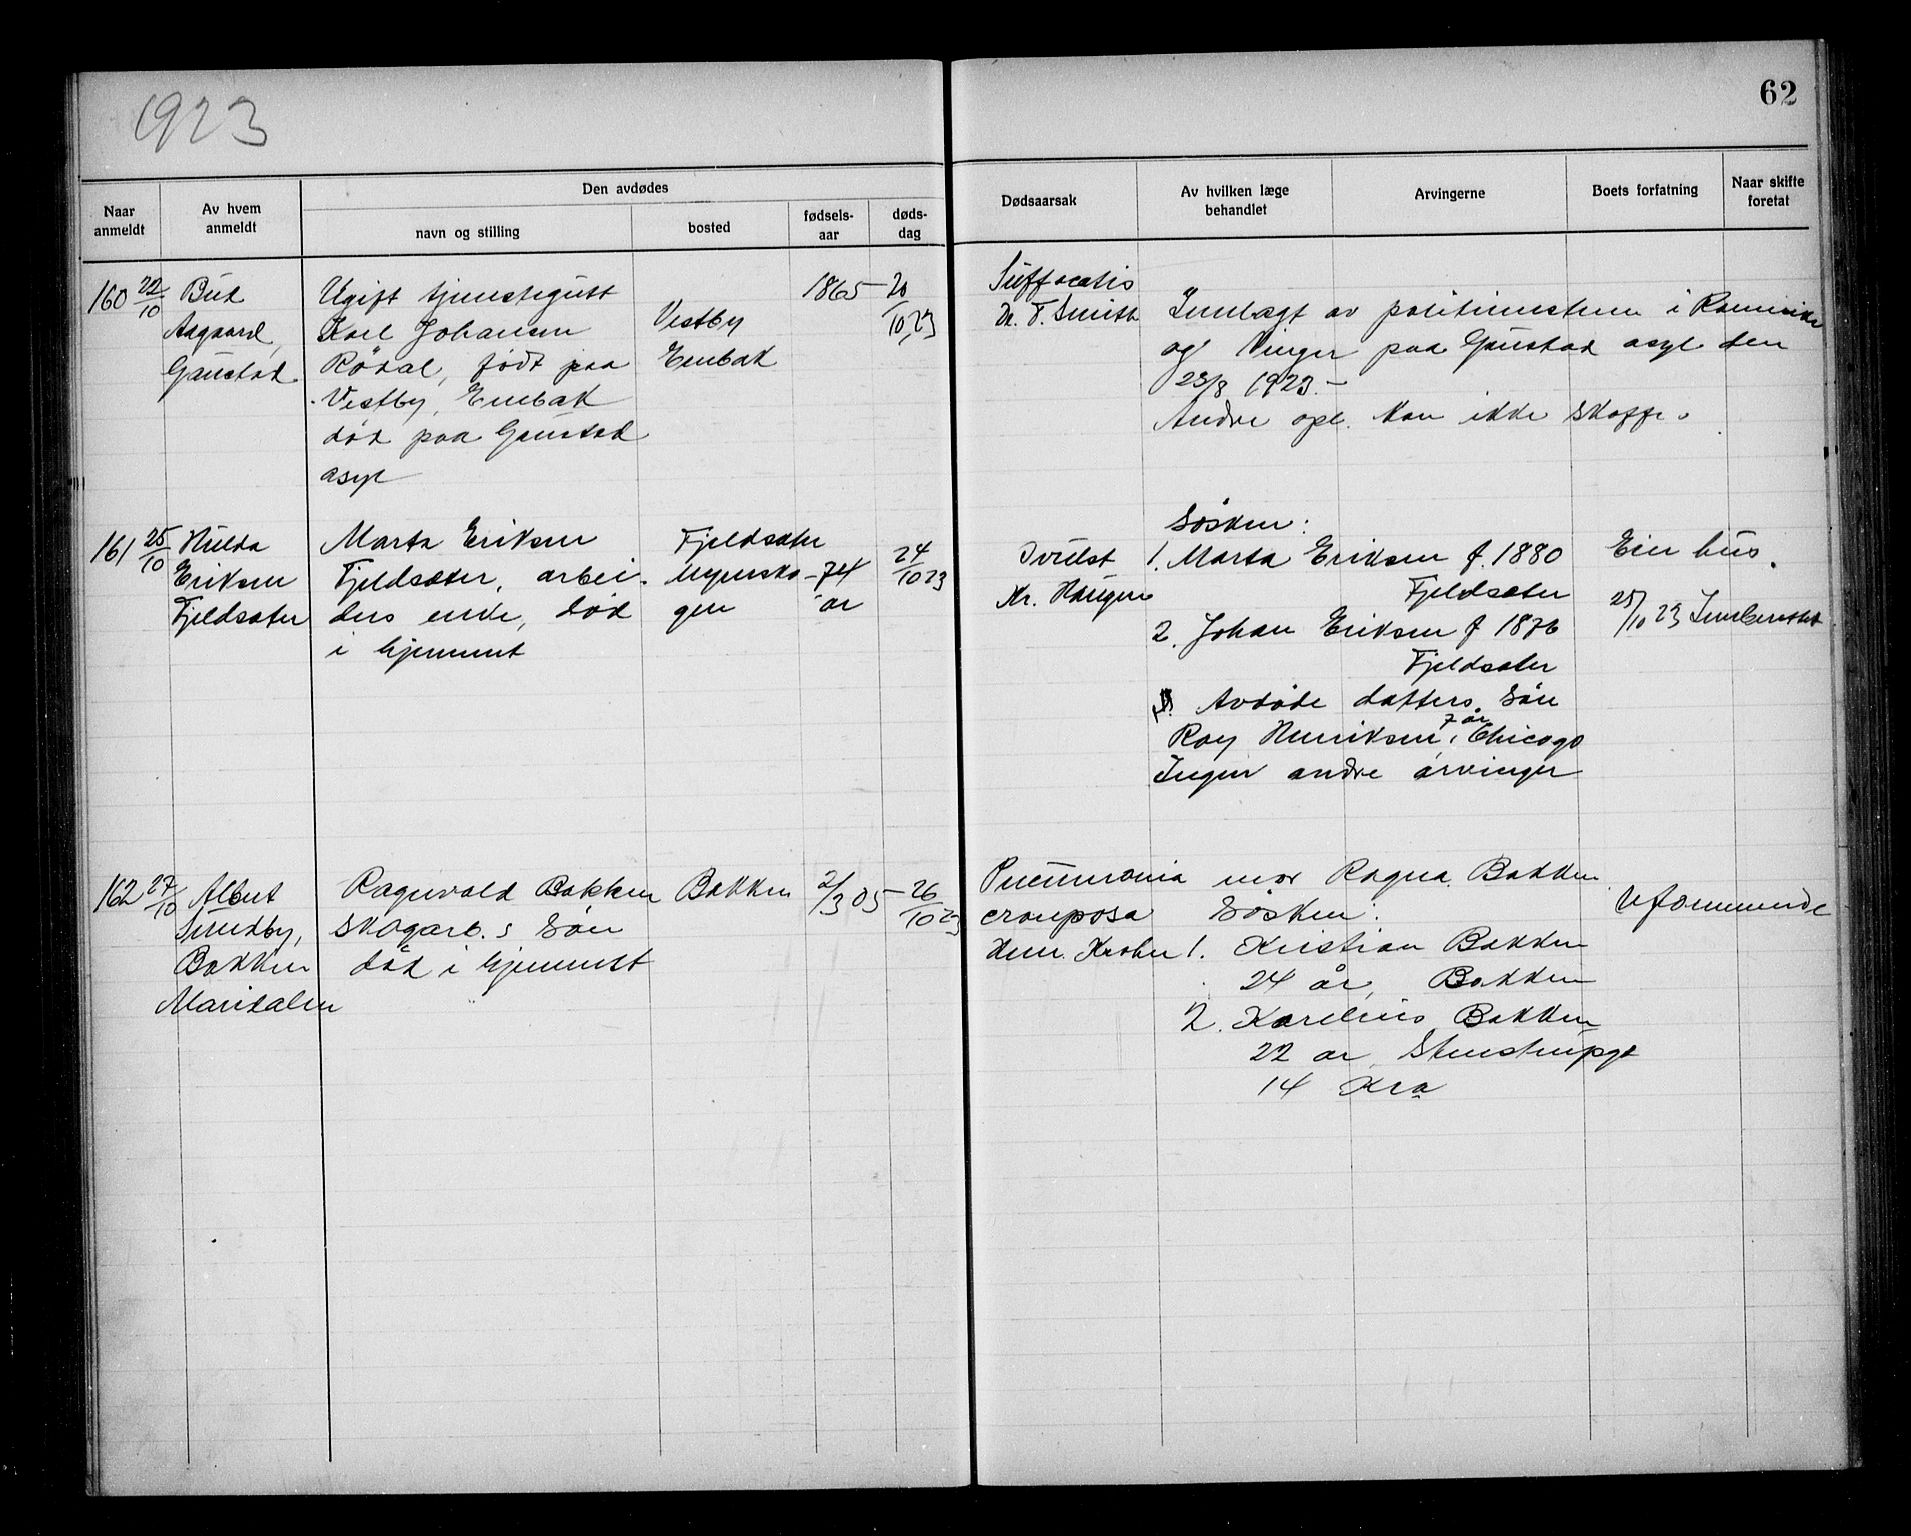 1923
62
Naar anmeldt
Av hvem anmeldt
Den avdødes
navn og stilling
bosted
fødsels-aar
døds-dag
Dødsaarsak
Av hvilken læge behandlet
Arvingerne
Boets forfatning
Naar skifte foretat
160 22/10
Bud
Aagaard,
Gaustad
Ugift tjenestegutt
Karl Johansen
Rödal, født paa
Vestby, Enebak
død paa Gaustad
asyl
Vestby
Enebak
1865 -
20/10 23
Suffocatio
Dr. F. Smith
Innlagt av politimesteren i Romerike
og Vinger paa Gaustad asyl den
23/8 1923.-
Andre opl. kan ikke skaffe.
161 25/10
Hulda
Eriksen
Fjeldsæter
Marta Eriksen
Fjeldsæter, arbei-
ders enke, död
i hjemmet
Fjeldsæter
Myrersko-
gen
74
år
24/10 23
Svulst
Kr. Haugen
Søsken:
1. Marta Eriksen f. 1880
Fjeldsæter
2. Johan Eriksen f 1876
Fjeldsæter
Avdøde datters sön
Roy Henriksen, 7 år Chicago
Ingen andre arvinger
Eier hus.
25/10 23
162 27/10
Albert
Sundby,
Bakken
Maridalen
Ragnvald Bakken
skogarb.s sön
död i hjemmet
Bakken
2/3 05 -
26/10 23
Pneumonia
crouposa
mor Ragna Bakken
Søsken:
1. Kristian Bakken
24 år, Bakken
2. Karelius Bakken
22 år, Stenstrupgt
14 Kra
Uformuende